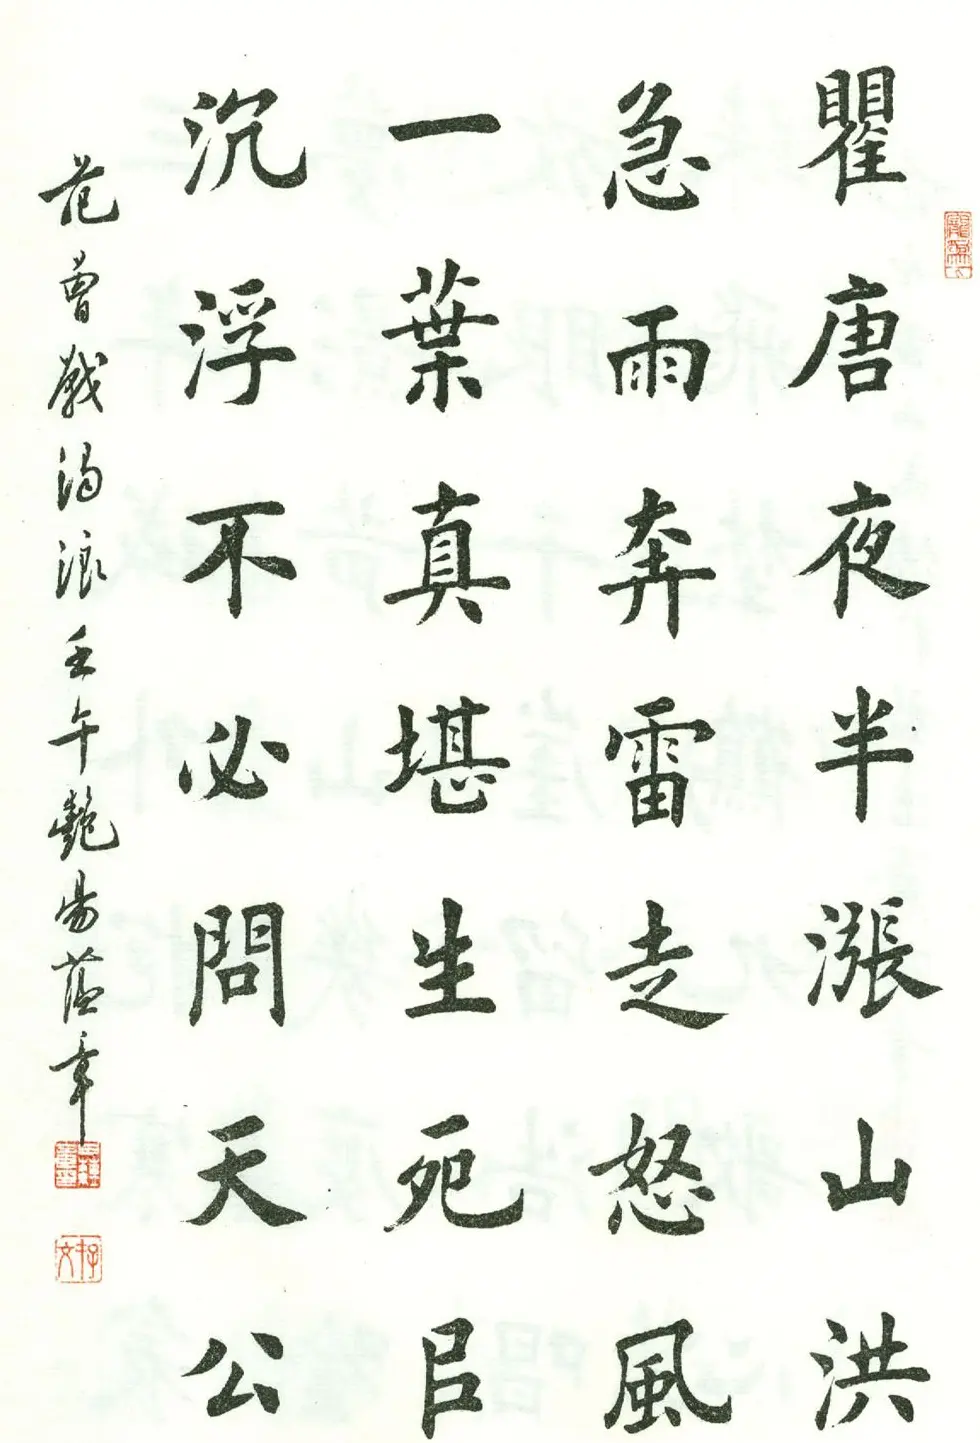 瞿唐夜半漲山洪
急雨奔雷走怒風
一葉真堪生死㠯
沉浮不必問天公
范曾戲浪壬午艷章